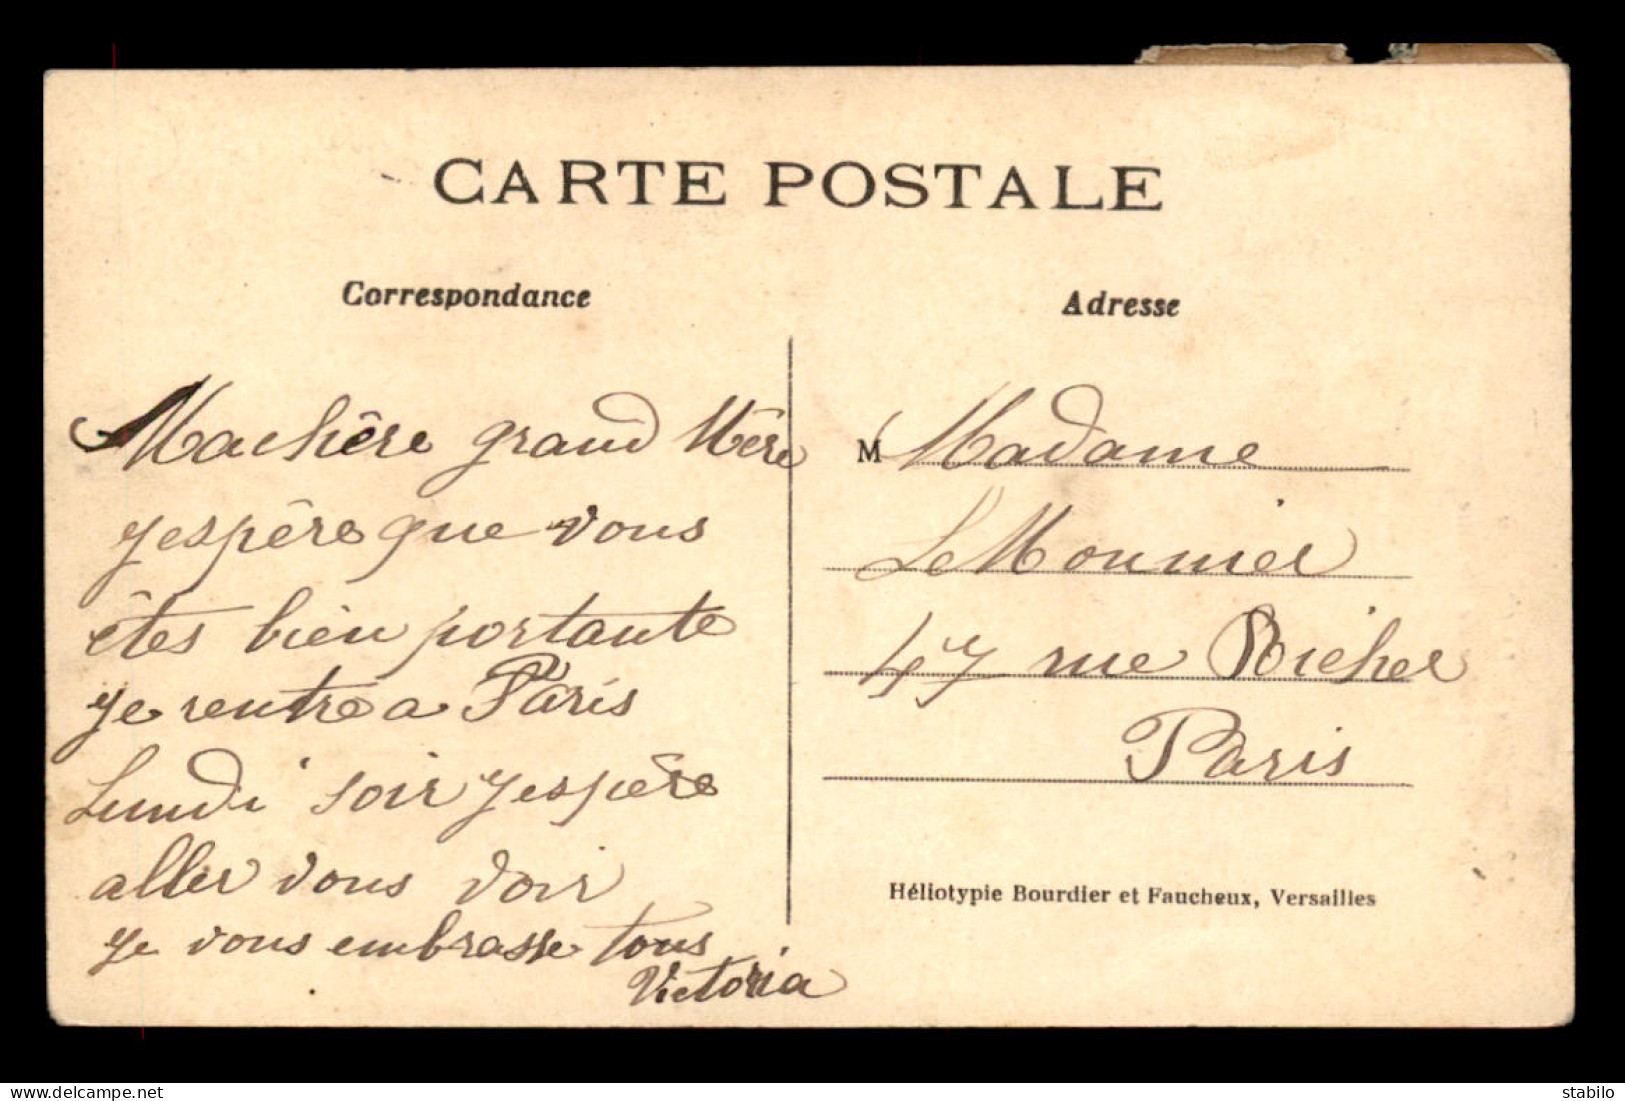 CARTE POSTALE
Correspondance
Machère grand Mère
jespère que vous
êtes bien portante
je rentre a Paris
Lundi soir jespère
aller vous voir
je vous embrasse tous
Victoria
Adresse
M Madame
LeMonnier
47 rue Richer
Paris
Héliotypie Bourdier et Faucheux, Versailles
delcampe.net
stabilo